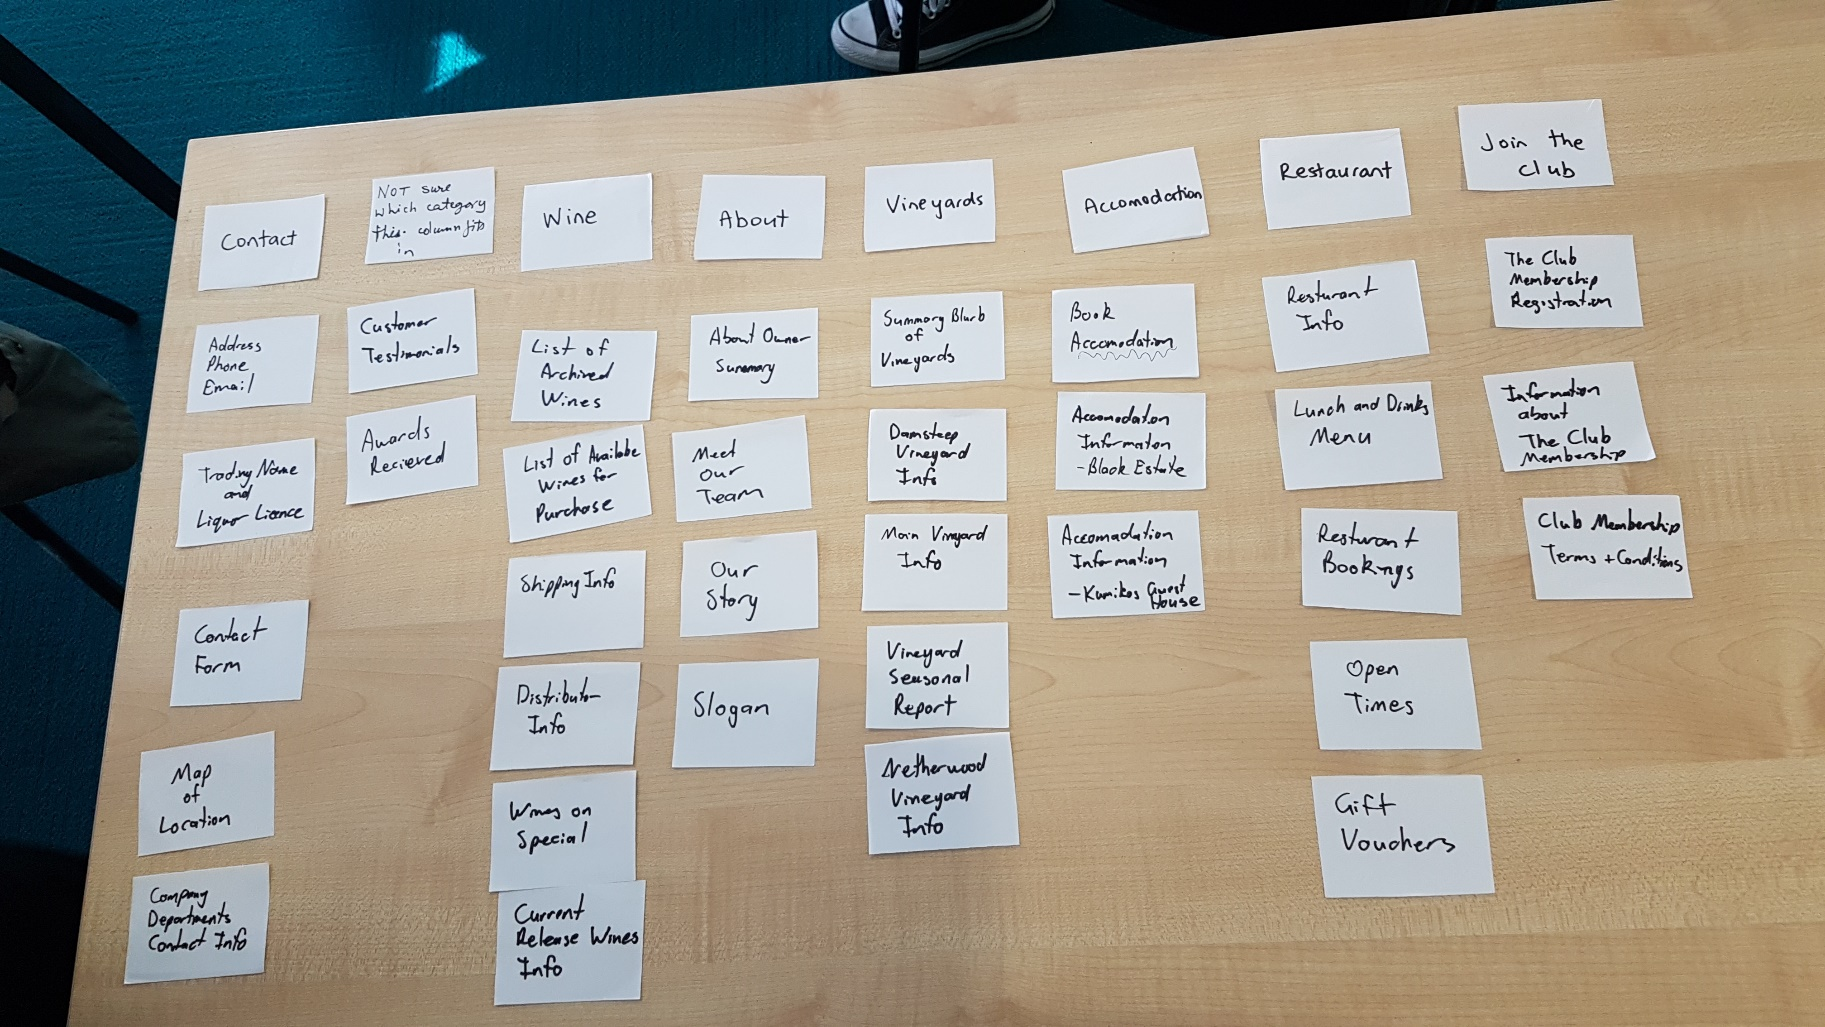 Contact
Address
Phone
Email
Trading Name
and
Liquor Licence
Contact
Form
Map
of
Location
Company
Departments
Contact Info
NOT sure
which category
this column fits
in
Customer
Testimonials
Awards
Recieved
Wine
List of
Archived
Wines
List of Availabe
Wines for
Purchase
Shipping Info
Distributor
Info
Wines on
Special
Current
Release Wines
Info
About
About Owner
Summary
Meet
Our
Team
Our
Story
Slogan
Vineyards
Summary Blurb
of
Vineyards
Damsteep
Vineyard
Info
Main Vineyard
Info
Vineyard
Seasonal
Report
Netherwood
Vineyard
Info
Accomodation
Book
Accomodation
Accomodation
Information
- Black Estate
Accomadation
Information
- Kumikos Guest
House
Restaurant
Resturant
Info
Lunch and Drinks
Menu
Resturant
Bookings
Open
Times
Gift
Vouchers
Join the
Club
The Club
Membership
Registration
Information
about
The Club
Membership
Club Membership
Terms + Conditions